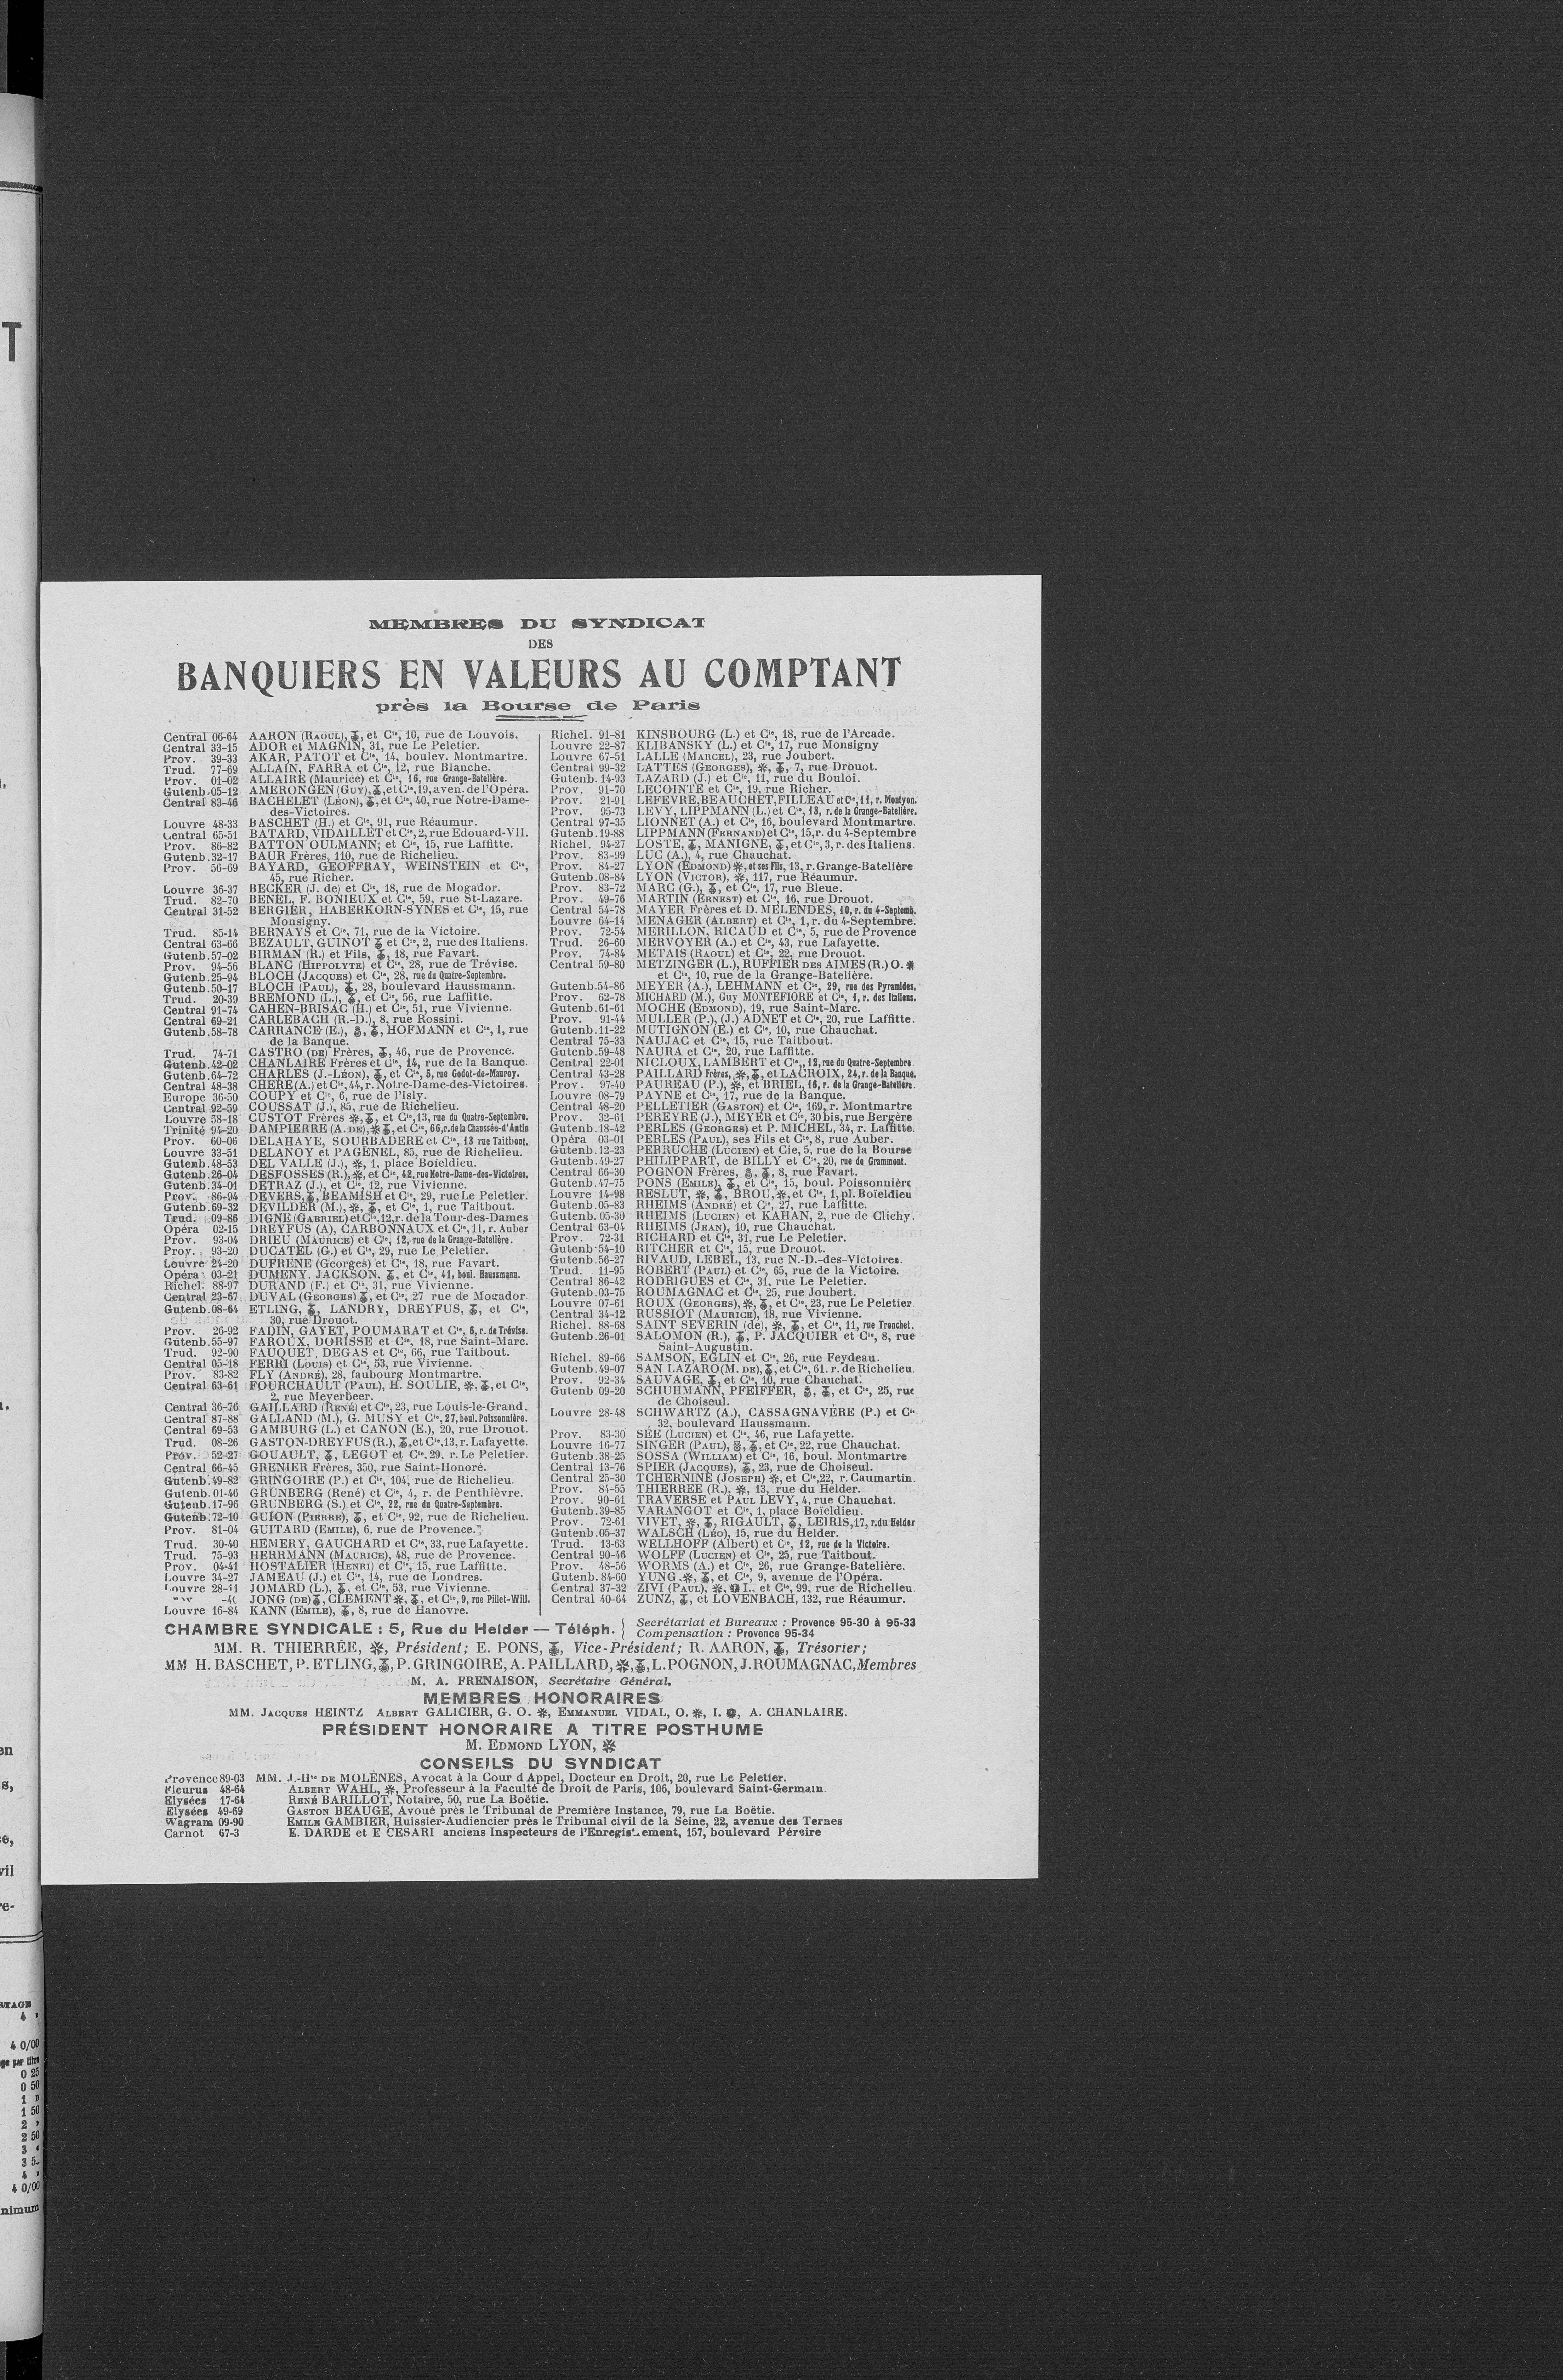 MEMBRES DU SYNDICAT
DES
BANQUIERS EN VALEURS AU COMPTANT
près la Bourse de Paris
Central 06-64 AARON (RAOUL), et Cie, 10, rue de Louvois.
Central 33-15 ADOR et MAGNIN, 31, rue Le Peletier.
Prov. 39-33 AKAR, PATOT et Cie, 14, boulev. Montmartre.
Trud. 77-69 ALLAIN, FARRA et Cie, 12, rue Blanche.
Prov. 01-02 ALLAIRE (Maurice) et Cie, 16, rue Grange-Batelière.
Gutenb. 05-12 AMERONGEN (GUY), et Cie, 19, aven. de l'Opéra.
Central 83-46 BACHELET (LÉON), et Cie, 40, rue Notre-Dame-
des-Victoires.
Louvre 48-33 BASCHET (H.) et Cie, 91, rue Réaumur.
Central 65-51 BATARD, VIDAILLET et Cie, 2, rue Edouard-VII.
Prov. 86-82 BATTON OULMANN; et Cie, 15, rue Laffitte.
Gutenb. 32-17 BAUR Frères, 110, rue de Richelieu.
Prov. 56-69 BAYARD, GEOFFRAY, WEINSTEIN et Cie,
45, rue Richer.
Louvre 36-37 BECKER (J. de) et Cie, 18, rue de Mogador.
Trud. 82-70 BENEL, F. BONIEUX et Cie, 59, rue St-Lazare.
Central 31-52 BERGIER, HABERKORN-SYNES et Cie, 15, rue
Monsigny.
Trud. 85-14 BERNAYS et Cie, 71, rue de la Victoire.
Central 63-66 BEZAULT, GUINOT et Cie, 2, rue des Italiens.
Gutenb. 57-02 BIRMAN (R.) et Fils, 18, rue Favart.
Prov. 94-56 BLANC (HIPPOLYTE) et Cie, 28, rue de Trévise.
Gutenb. 25-94 BLOCH (JACQUES) et Cie, 28, rue du Quatre-Septembre.
Gutenb. 50-17 BLOCH (PAUL), 28, boulevard Haussmann.
Trud. 20-39 BREMOND (L.), et Cie, 56, rue Laffitte.
Central 91-74 CAHEN-BRISAC (H.) et Cie, 51, rue Vivienne.
Central 69-21 CARLEBACH (R.-D.), 8, rue Rossini.
Gutenb. 58-78 CARRANCE (E.), HOFMANN et Cie, 1, rue
de la Banque.
Trud. 74-71 CASTRO (DE) Frères, 46, rue de Provence.
Gutenb. 42-02 CHANLAIRE Frères et Cie, 14, rue de la Banque.
Gutenb. 64-72 CHARLES (J.-LÉON), et Cie, 5, rue Godot-de-Mauroy.
Central 48-38 CHERE (A.) et Cie, 44, r. Notre-Dame-des-Victoires.
Europe 36-50 COUPY et Cie, 6, rue de l'Isly.
Central 92-59 COUSSAT (J.), 85, rue de Richelieu.
Louvre 58-18 CUSTOT Frères, et Cie, 13, rue du Quatre-Septembre.
Trinité 94-20 DAMPIERRE (A. DE), et Cie, 66, r. de la Chaussée-d'Antin
Prov. 60-06 DELAHAYE, SOURBADERE et Cie, 13 rue Taitbout.
Louvre 33-51 DELANOY et PAGENEL, 85, rue de Richelieu.
Gutenb. 48-53 DEL VALLE (J.), 1, place Boïeldieu.
Gutenb. 26-04 DESFOSSES (R.), et Cie, 42, rue Notre-Dame-des-Victoires.
Gutenb. 34-01 DETRAZ (J.), et Cie, 12, rue Vivienne.
Prov. 86-94 DEVERS, BEAMISH et Cie, 29, rue Le Peletier.
Gutenb. 69-32 DEVILDER (M.), et Cie, 1, rue Taitbout.
Trud. 09-86 DIGNE (GABRIEL) et Cie, 12, r. de la Tour-des-Dames
Opéra 02-15 DREYFUS (A), CARBONNAUX et Cie, 11, r. Auber
Prov. 93-04 DRIEU (MAURICE) et Cie, 12, rue de la Grange-Batelière.
Prov. 93-20 DUCATEL (G.) et Cie, 29, rue Le Peletier.
Louvre 24-20 DUFRENE (Georges) et Cie, 18, rue Favart.
Opéra 03-21 DUMENY. JACKSON, et Cie, 41, boul. Haussmann.
Richel. 88-97 DURAND (F.) et Cie, 31, rue Vivienne.
Central 23-67 DUVAL (GEORGES), et Cie, 27 rue de Mogador.
Gutenb. 08-64 ETLING, LANDRY, DREYFUS, et Cie,
30, rue Drouot.
Prov. 26-92 FADIN, GAYET, POUMARAT et Cie, 6, r. de Trévise.
Gutenb. 55-97 FAROUX, DORISSE et Cie, 18, rue Saint-Marc.
Trud. 92-90 FAUQUET, DEGAS et Cie, 66, rue Taitbout.
Central 05-18 FERRI (LOUIS) et Cie, 53, rue Vivienne.
Prov. 83-82 FLY (ANDRÉ), 28, faubourg Montmartre.
Central 63-61 FOURCHAULT (PAUL), H. SOULIE, et Cie,
2, rue Meyerbeer.
Central 36-76 GAILLARD (RENÉ) et Cie, 23, rue Louis-le-Grand.
Central 87-88 GALLAND (M.), G. MUSY et Cie, 27, boul. Poissonnière.
Central 69-53 GAMBURG (L.) et CANON (E.), 20, rue Drouot.
Trud. 08-26 GASTON-DREYFUS (R.), et Cie, 13, r. Lafayette.
Prov. 52-27 GOUAULT, LEGOT et Cie. 29. r. Le Peletier.
Central 66-45 GRENIER Frères, 350, rue Saint-Honoré.
Gutenb. 49-82 GRINGOIRE (P.) et Cie, 104, rue de Richelieu.
Gutenb. 01-46 GRÜNBERG (René) et Cie, 4, r. de Penthièvre.
Gutenb. 17-96 GRUNBERG (S.) et Cie, 22, rue du Quatre-Septembre.
Gutenb. 72-10 GUION (PIERRE), et Cie, 92, rue Richelieu.
Prov. 81-04 GUITARD (EMILE), 6, rue de Provence.
Trud. 30-40 HEMERY, GAUCHARD et Cie, 33, rue Lafayette.
Trud. 75-93 HERRMANN (MAURICE), 48, rue de Provence.
Prov. 04-41 HOSTALIER (HENRI) et Cie, 15, rue Laffitte.
Louvre 34-27 JAMEAU (J.) et Cie, 14, rue de Londres.
Louvre 28-11 JOMARD (L.), et Cie, 53, rue Vivienne.
JONG (DE), CLEMENT, et Cie, 9, rue Pillet-Will.
Louvre 16-84 KANN (EMILE), 8, rue de Hanovre.
Richel. 91-81 KINSBOURG (L.) et Cie, 18, rue de l'Arcade.
Louvre 22-87 KLIBANSKY (L.) et Cie, 17, rue Monsigny
Louvre 67-51 LALLE (MARCEL), 23, rue Joubert.
Central 99-32 LATTES (GEORGES), 7, rue Drouot.
Gutenb. 14-93 LAZARD (J.) et Cie, 11, rue du Bouloi.
Prov. 91-70 LECOINTE et Cie, 19, rue Richer.
Prov. 21-91 LEFEVRE, BEAUCHET, FILLEAU et Cie, 11, r. Montyon.
Prov. 95-73 LEVY, LIPPMANN (L.) et Cie, 13, r. de la Grange-Batelière.
Central 97-35 LIONNET (A.) et Cie, 16, boulevard Montmartre.
Gutenb. 19-88 LIPPMANN (FERNAND) et Cie, 15, r. du 4-Septembre
Richel. 94-27 LOSTE, MANIGNE, et Cie, 3, r. des Italiens.
Prov. 83-99 LUC (A.), 4, rue Chauchat.
Prov. 84-27 LYON (EDMOND), et ses Fils, 13, r. Grange-Batelière
Gutenb. 08-84 LYON (VICTOR), 117, rue Réaumur.
Prov. 83-72 MARC (G.), et Cie, 17, rue Bleue.
Prov. 49-76 MARTIN (ERNEST) et Cie, 16, rue Drouot.
Central 54-78 MAYER Frères et D. MELENDES, 10, r. du 4-Septemb.
Louvre 64-14 MENAGER (ALBERT) et Cie, 1, r. du 4-Septembre.
Prov. 72-54 MERILLON, RICAUD et Cie, 5, rue de Provence
Trud. 26-60 MERVOYER (A.) et Cie, 43, rue Lafayette.
Prov. 74-84 METAIS (RAOUL) et Cie, 22, rue Drouot.
Central 59-80 METZINGER (L.), RUFFIER DES AIMES (R.) O.
et Cie, 10, rue de la Grange-Batelière.
Gutenb. 54-86 MEYER (A.), LEHMANN et Cie, 29, rue des Pyramides.
Prov. 62-78 MICHARD (M.), Guy MONTEFIORE et Cie, 1, r. des Italiens.
Gutenb. 61-61 MOCHE (EDMOND), 19, rue Saint-Marc.
Prov. 91-44 MULLER (P.), (J.) ADNET et Cie, 20, rue Laffitte.
Gutenb. 11-22 MUTIGNON (E.) et Cie, 10, rue Chauchat.
Central 75-33 NAUJAC et Cie, 15, rue Taitbout.
Gutenb. 59-48 NAURA et Cie, 20, rue Laffitte.
Central 22-01 NICLOUX, LAMBERT et Cie, 12, rue du Quatre-Septembre
Central 43-28 PAILLARD Frères, et LACROIX, 24, r. de la Banque.
Prov. 97-40 PAUREAU (P.), et BRIEL, 16, r. de la Grange-Batelière.
Louvre 08-79 PAYNE et Cie, 17, rue de la Banque.
Central 48-20 PELLETIER (GASTON) et Cie, 169, r. Montmartre
Prov. 32-61 PEREYRE (J.), MEYER et Cie, 30 bis, rue Bergère
Gutenb. 18-42 PERLES (GEORGES) et P. MICHEL, 34, r. Laffitte.
Opéra 03-01 PERLES (PAUL), ses Fils et Cie, 8, rue Auber.
Gutenb. 12-23 PERRUCHE (LUCIEN) et Cie, 5, rue de la Bourse
Gutenb. 49-27 PHILIPPART, de BILLY et Cie, 20, rue de Grammont.
Central 66-30 POGNON Frères, 8, rue Favart.
Gutenb. 47-75 PONS (EMILE), et Cie, 15, boul. Poissonnière
Louvre 14-98 RESLUT, BROU, et Cie, 1, pl. Boïeldieu
Gutenb. 05-83 RHEIMS (ANDRÉ) et Cie, 27, rue Laffitte.
Gutenb. 05-30 RHEIMS (LUCIEN) et KAHAN, 2, rue de Clichy.
Central 63-04 RHEIMS (JEAN), 10, rue Chauchat.
Prov. 72-31 RICHARD et Cie, 31, rue Le Peletier.
Gutenb. 54-10 RITCHER et Cie, 15, rue Drouot.
Gutenb. 56-27 RIVAUD, LEBEL, 13, rue N.-D.-des-Victoires.
Trud. 11-95 ROBERT (PAUL) et Cie, 65, rue de la Victoire.
Central 86-42 RODRIGUES et Cie, 31, rue Le Peletier.
Gutenb. 03-75 ROUMAGNAC et Cie, 25, rue Joubert.
Louvre 07-61 ROUX (GEORGES), et Cie, 23, rue Le Peletier
Central 34-12 RUSSIOT (MAURICE), 18, rue Vivienne.
Richel. 88-68 SAINT SEVERIN (de), et Cie, 11, rue Tronchet.
Gutenb. 26-01 SALOMON (R.), P. JACQUIER et Cie, 8, rue
Saint-Augustin.
Richel. 89-66 SAMSON, EGLIN et Cie, 26, rue Feydeau.
Gutenb. 49-07 SAN LAZARO (M. DE), et Cie, 61. r. de Richelieu.
Prov. 92-34 SAUVAGE, et Cie, 10, rue Chauchat.
Gutenb 09-20 SCHUHMANN, PFEIFFER, et Cie, 25, rue
de Choiseul.
Louvre 28-48 SCHWARTZ (A.), CASSAGNAVÈRE (P.) et Cie
32, boulevard Haussmann.
Prov. 83-30 SÉE (LUCIEN) et Cie, 46, rue Lafayette.
Louvre 16-77 SINGER (PAUL), et Cie, 22, rue Chauchat.
Gutenb. 38-25 SOSSA (WILLIAM) et Cie, 16, boul. Montmartre
Central 13-76 SPIER (JACQUES), 23, rue de Choiseul.
Central 25-30 TCHERNINE (JOSEPH), et Cie, 22, r. Caumartin.
Prov. 84-55 THIERREE (R.), 13, rue du Helder.
Prov. 90-61 TRAVERSE et PAUL LEVY, 4, rue Chauchat.
Gutenb. 39-85 VARANGOT et Cie, 1, place Boïeldieu.
Prov. 72-61 VIVET, RIGAULT, LEIRIS, 17, r. du Helder
Gutenb. 05-37 WALSCH (LÉO), 15, rue du Helder.
Trud. 13-63 WELLHOFF (Albert) et Cie, 12, rue de la Victoire.
Central 90-46 WOLFF (LUCIEN) et Cie, 25, rue Taitbout.
Prov. 48-56 WORMS (A.) et Cie, 26, rue Grange-Batelière.
Gutenb. 84-60 YUNG, et Cie, 9, avenue de l'Opéra.
Central 37-32 ZIVI (PAUL), I., et Cie, 99, rue de Richelieu.
Central 40-64 ZUNZ, et LOVENBACH, 132, rue Réaumur.
CHAMBRE SYNDICALE : 5, Rue du Helder — Téléph.
Secrétariat et Bureaux : Provence 95-30 à 95-33
Compensation : Provence 95-34
MM. R. THIERRÉE, Président; E. PONS, Vice-Président; R. AARON, Trésorier;
MM H. BASCHET, P. ETLING, P. GRINGOIRE, A. PAILLARD, L. POGNON, J. ROUMAGNAC, Membres
M. A. FRENAISON, Secrétaire Général.
MEMBRES HONORAIRES
MM. JACQUES HEINTZ ALBERT GALICIER, G. O., EMMANUEL VIDAL, O., I., A. CHANLAIRE.
PRÉSIDENT HONORAIRE A TITRE POSTHUME
M. EDMOND LYON,
CONSEILS DU SYNDICAT
Provence 89-03 MM. J.-Hte DE MOLÈNES, Avocat à la Cour d'Appel, Docteur en Droit, 20, rue Le Peletier.
Fleurus 48-64 ALBERT WAHL, Professeur à la Faculté de Droit de Paris, 106, boulevard Saint-Germain.
Elysées 17-64 RENÉ BARILLOT, Notaire, 50, rue La Boëtie.
Elysées 49-69 GASTON BEAUGE, Avoué près le Tribunal de Première Instance, 79, rue La Boëtie.
Wagram 09-90 EMILE GAMBIER, Huissier-Audiencier près le Tribunal civil de la Seine, 22, avenue des Ternes
Carnot 67-3 E. DARDE et E CESARI anciens Inspecteurs de l'Enregistrement, 157, boulevard Péreire
T
en
s,
e,
vil
re-
4 0/00
0 25
0 50
1 »
1 50
2 »
2 50
4 0/00
nimum